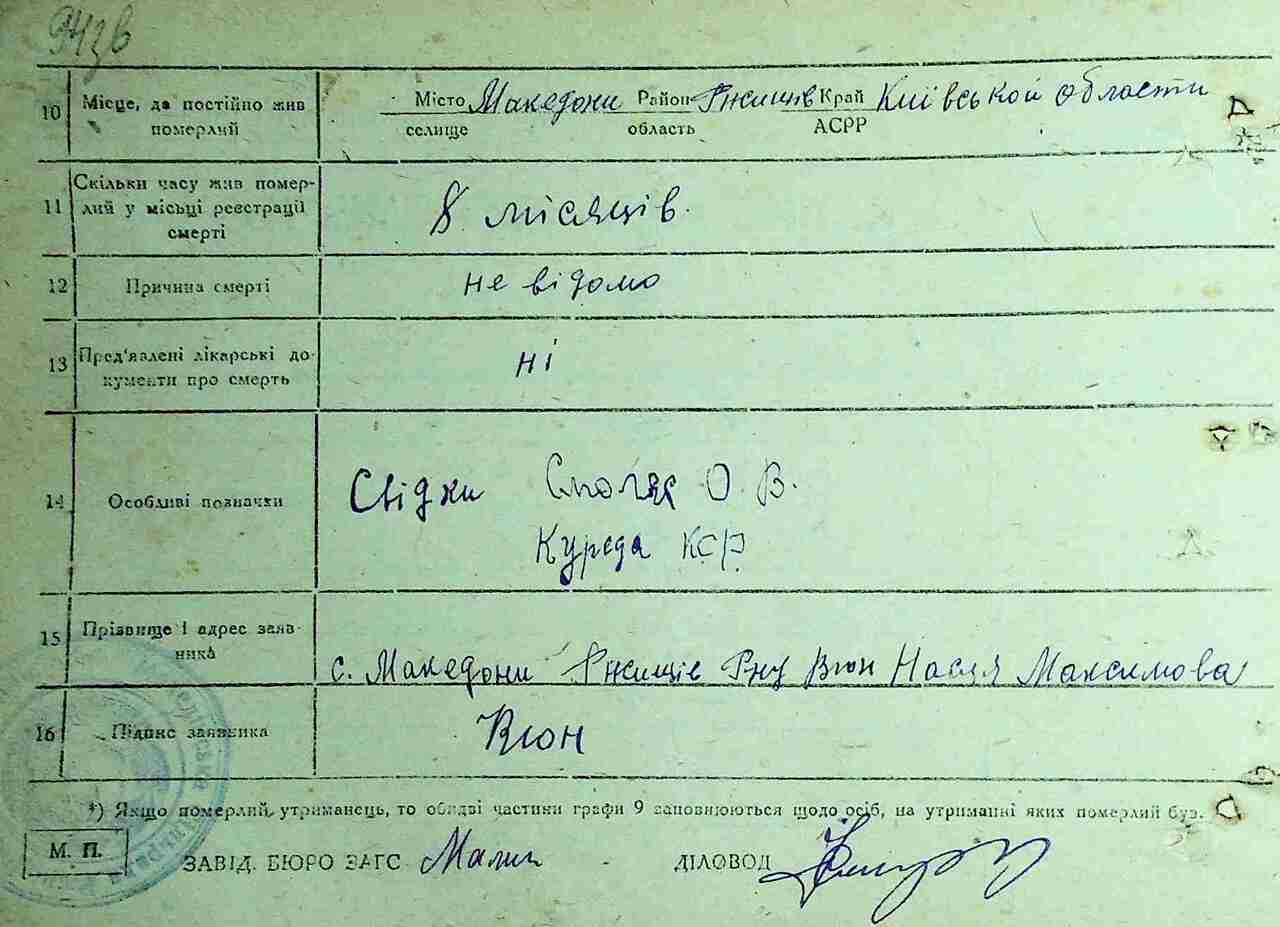 10 Місце, де постійно жив померлий
Місто Македони Район Ржищів Край Київськой области
селище область АСРР
11 Скільки часу жив померлий у місці реєстрації смерті
8 місяців.
12 Причина смерті
не відомо
13 Пред'явлені лікарські документи про смерть
ні
14 Особливі позначки
Свідки О. В.
Куреда
15 Прізвище і адрес заявника
с. Македони Ржищів Вюн Настя Максимова
16 Підпис заявника
Вюн
*) Якщо померлий, утриманець, то обидві частини графи 9 заповнюються щодо осіб, на утриманні яких померлий був.
М. П.
ЗАВІД. БЮРО ЗАГС ДІЛОВОД